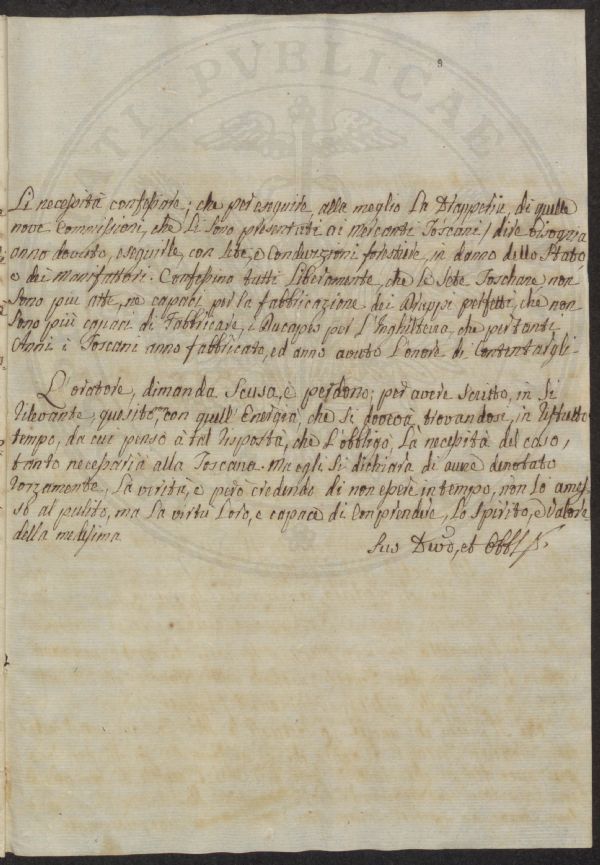 ATI PVBLICAE
9
Li necessità confessare; che per esequire, alla meglio La Drapperia, di quelle
nove Commissioni, che Li Sono presentati ai Mercanti Toscani / dire bisognia
anno dovuto, esequille, con Sete, e Condurzioni forestiere, in danno dello Stato
e dei Manifattori. Confessino tutti Liberamente, che le Sete Toschane, non
Sono piu atte, ne capaci per la fabbricazione dei Drappi perfetti, che non
Sono più capaci di Fabbricare, i Ducapes per L'Inghilterra, che per tanti
Anni i Toscani anno fabbricato, ed anno avuto L'onore di Contentargli
L'oratore, dimanda Scusa, e perdono; per avere Scritto, in Si
rilevante, quesito, con quell'Energia, che Si doveva trovandosi, in ristretto
tempo, da cui penso à tal risposta, che L'obbligo, La necessità del caso,
tanto necessaria alla Toscana. Ma egli Si dichiara di avere denotato
rozzamente, La verità, e però credendo di non essere in tempo, non Lo à mes-
so al pulito, ma La virtù Loro, e capace di Comprendere, Lo Spirito, e Valore
della medesima
Suo Devo, et Obbl